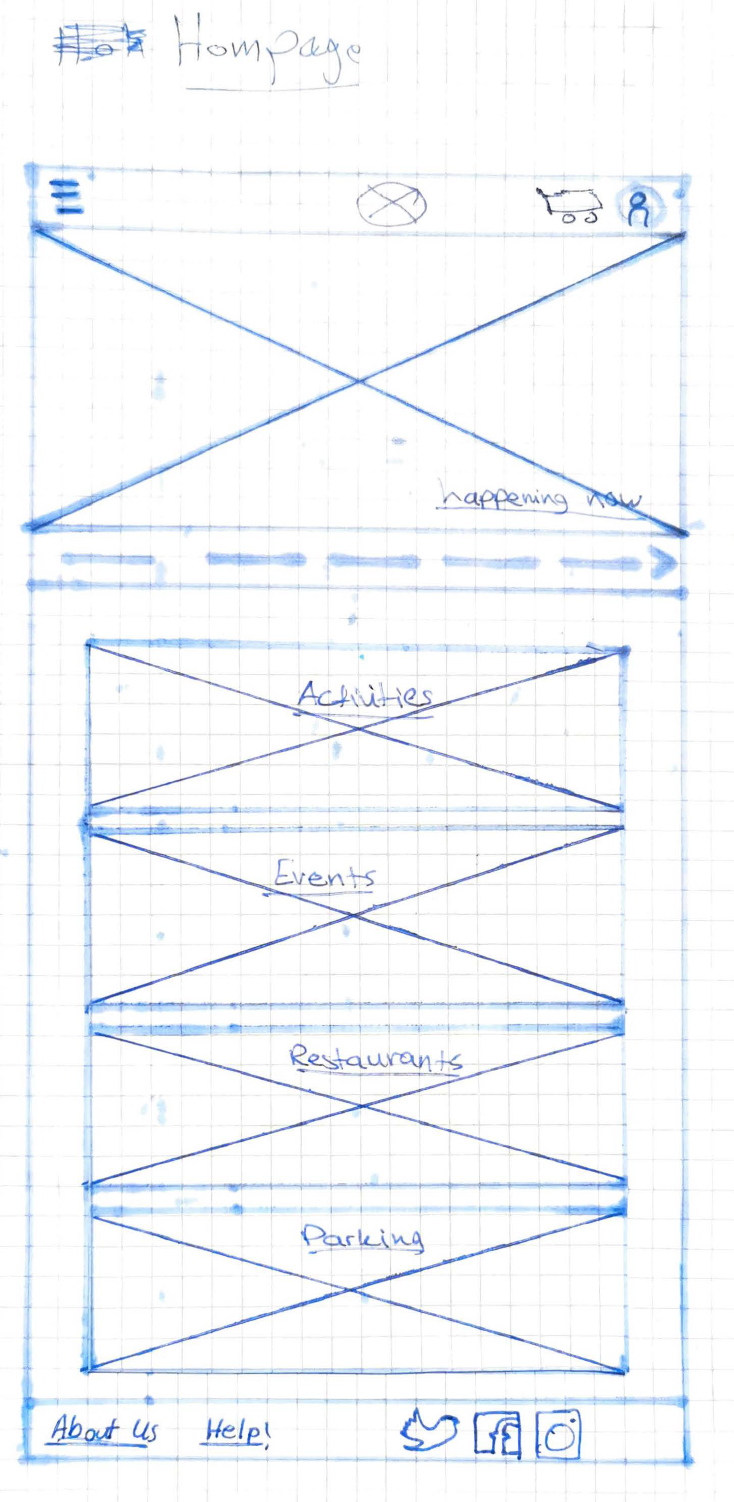 Hompage
happening now
Activities
Events
Restaurants
Parking
About Us Help!